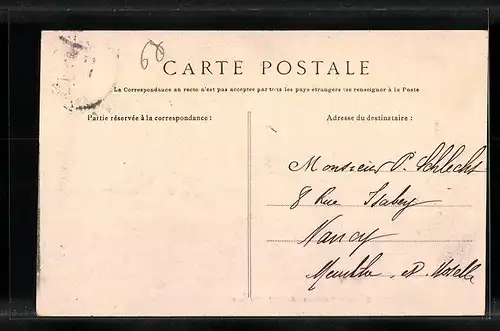 60
CARTE POSTALE
La Correspondance au recto n'est pas acceptée par tous les pays étrangers (se renseigner à la Poste
Partie réservée à la correspondance :
Adresse du destinataire :
Monsieur P. Schlecht
8 Rue Isabey
Nancy
Meurthe et Moselle